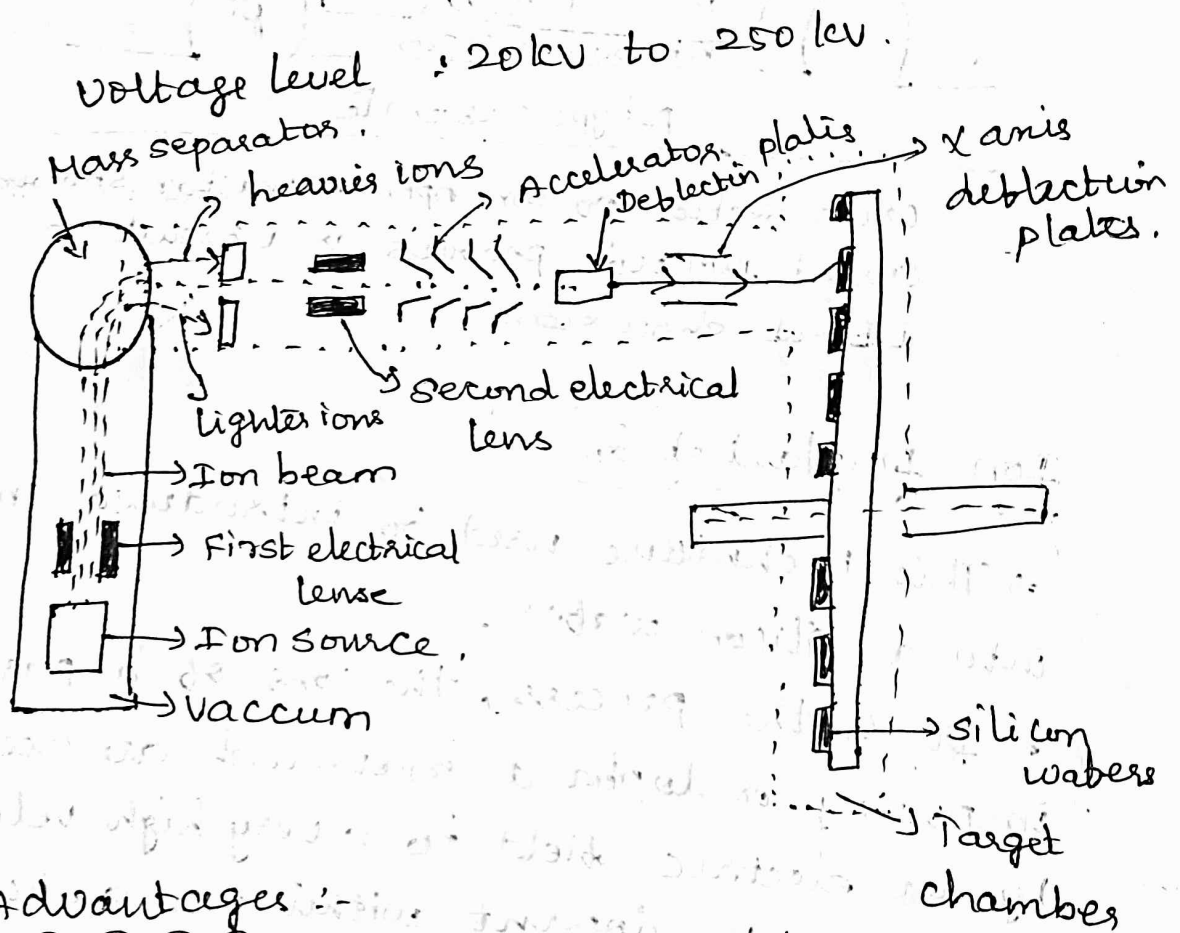 Voltage level : 20kV to 250 kV.
Mass separator.
heavier ions
Accelerator plates
Deflectin
X axis
deflection
plates.
Second electrical
lens
lighter ions
Ion beam
First electrical
lense
Ion source.
Vaccum
silicon
wafers
Target
chamber
Advantages :-